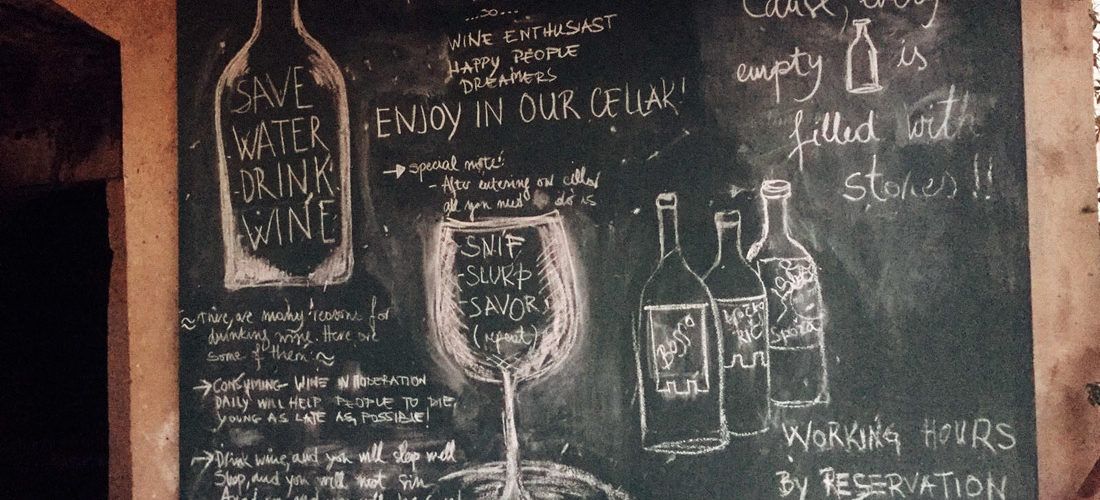 SAVE
WATER
DRINK
WINE
...SO...
WINE ENTHUSIAST
HAPPY PEOPLE
DREAMERS
ENJOY IN OUR CELLAR!
special note:
- After entering our cellar
all you need to do is
- SNIF
- SLURP
- SAVOR
(repeat)
~ There are many reasons for
drinking wine. Here are
some of them: ~
→ CONSUMING WINE IN MODERATION
DAILY WILL HELP PEOPLE TO DIE
YOUNG AS LATE AS POSSIBLE!
→ Drink wine, and you will sleep well
Sleep, and you will not sin
Cause, every
empty is
filled with
stories!!
WORKING HOURS
BY RESERVATION